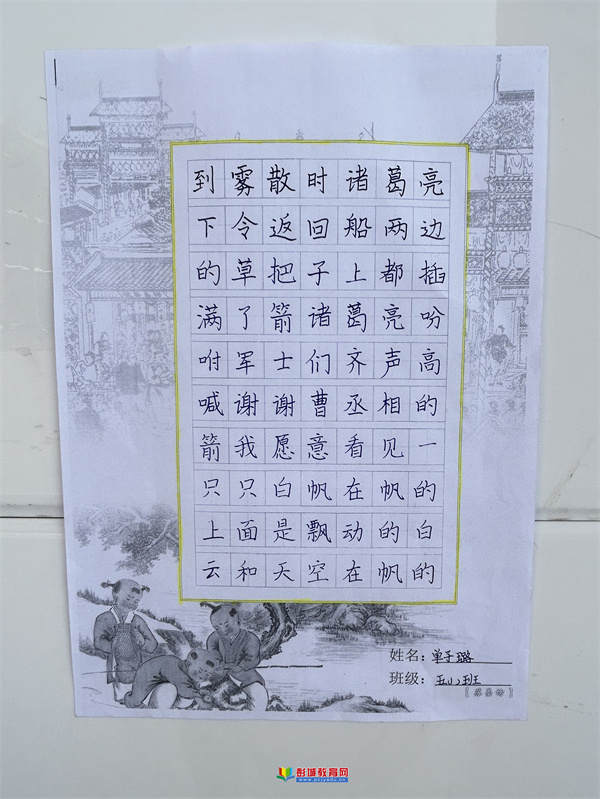 到雾散时诸葛亮
下令返回船两边
的草把子上都插
满了箭诸葛亮吩
咐军士们齐声高
喊谢谢曹丞相的
箭我愿意看见一
只只白帆在帆的
上面是飘动的白
云和天空在帆的
姓名：单子璐
班级：
彭城教育网
www.pcjyedu.cn